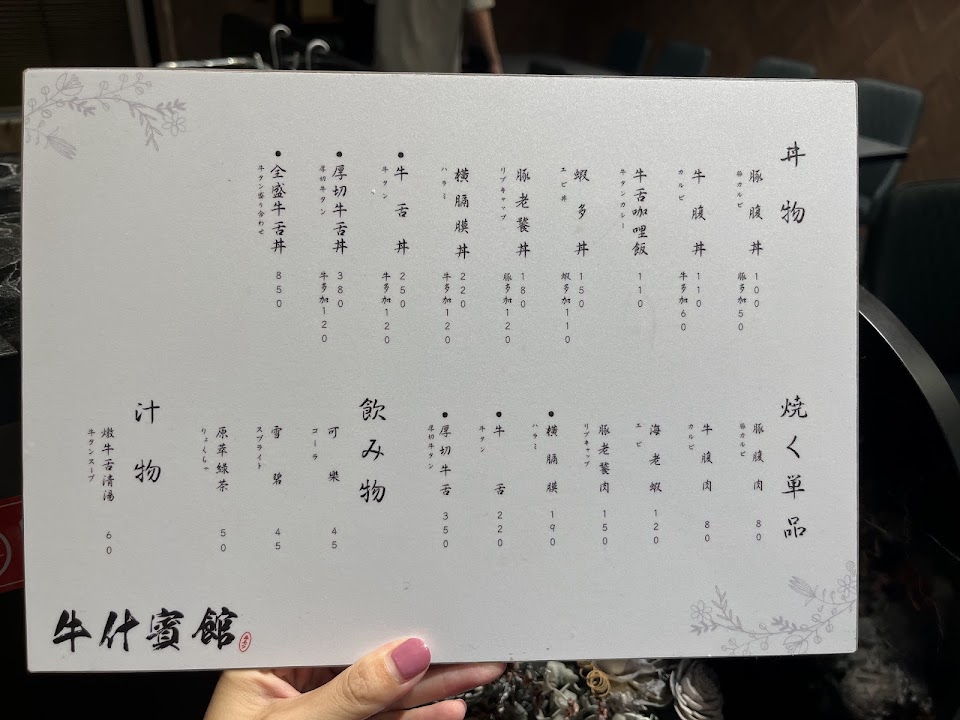 丼物
豚腹丼 100
豚カルビ 豚多加50
牛腹丼 110
カルビ 牛多加60
牛舌咖哩飯 110
牛タンカレー
蝦多丼 150
エビ丼 蝦多加110
豚老饕丼 180
リブキャップ 豚多加120
橫膈膜丼 220
ハラミ 牛多加120
•牛舌丼 250
牛タン 牛多加120
•厚切牛舌丼 380
厚切牛タン 牛多加120
•全盛牛舌丼 850
牛タン盛り合わせ
焼く単品
豚腹肉 80
豚カルビ
牛腹肉 80
カルビ
海老蝦 120
エビ
豚老饕肉 150
リブキャップ
•橫膈膜 190
ハラミ
•牛舌 220
牛タン
•厚切牛舌 350
厚切牛タン
飲み物
可樂 45
コーラ
雪碧 45
スプライト
原萃綠茶 50
りょくちゃ
汁物
燉牛舌清湯 60
牛タンスープ
牛什賓館